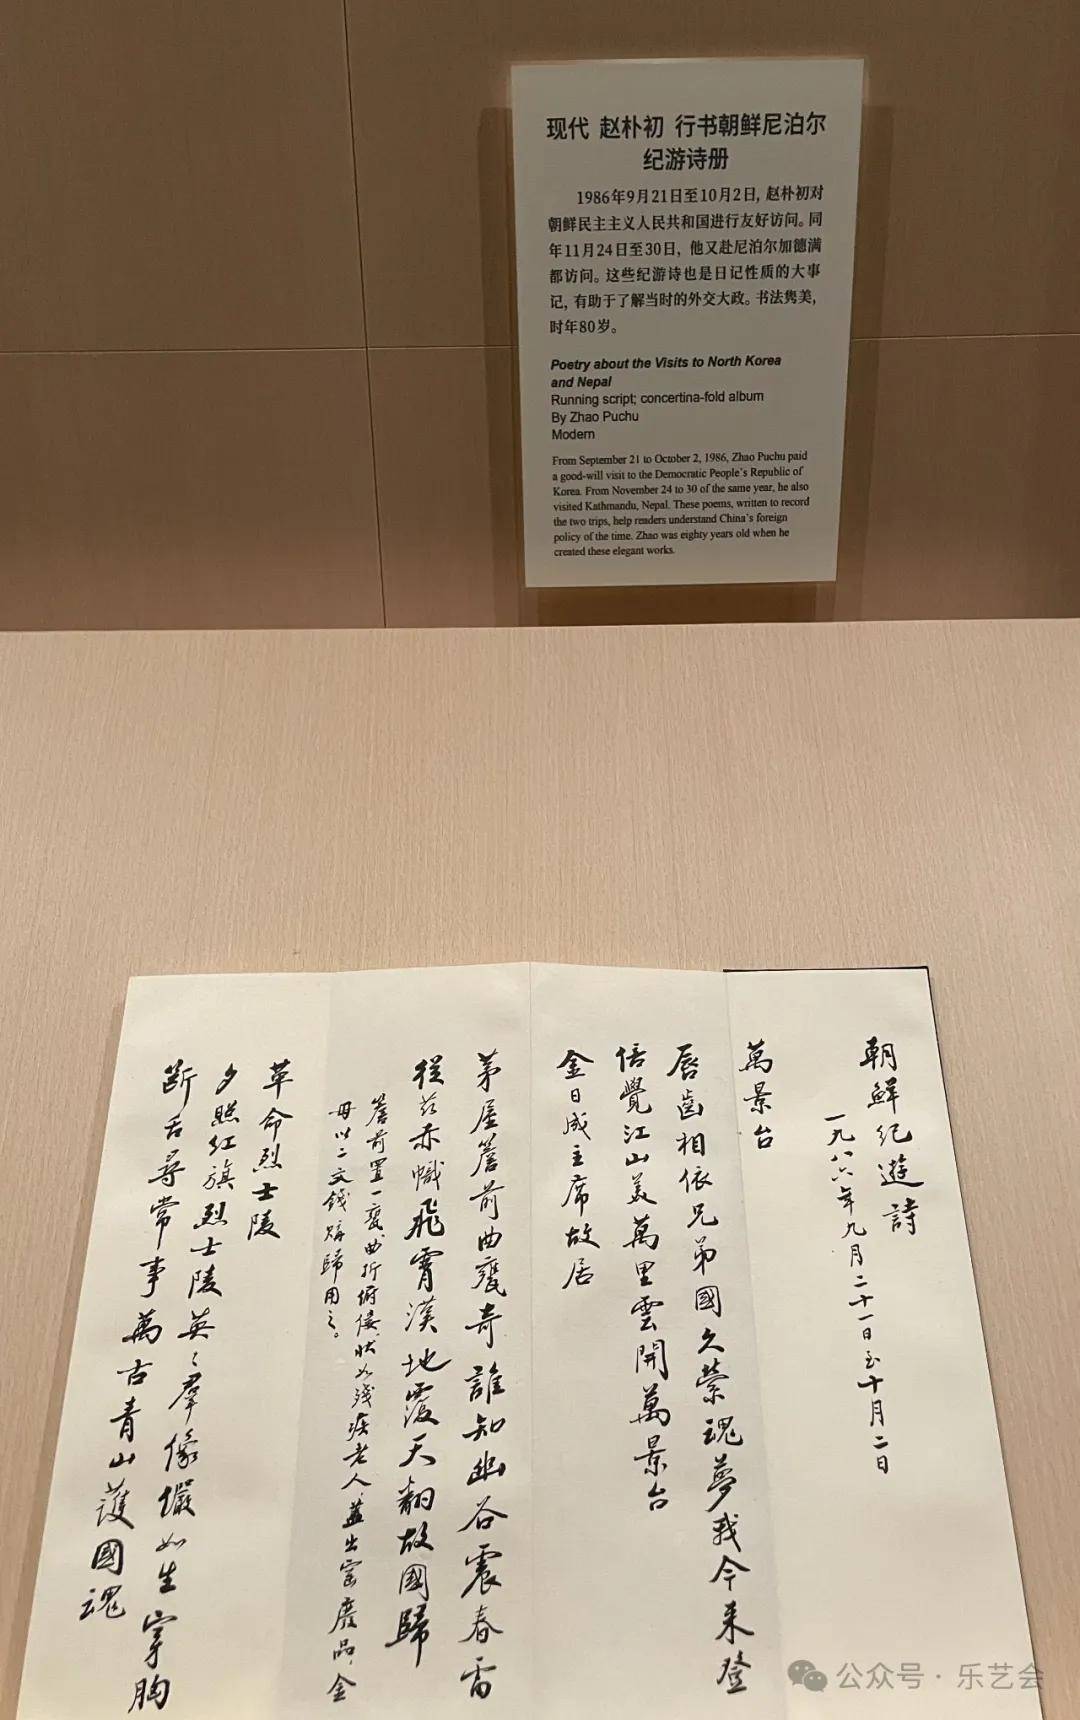 现代 赵朴初 行书朝鲜尼泊尔
纪游诗册
1986年9月21日至10月2日，赵朴初对
朝鲜民主主义人民共和国进行友好访问。同
年11月24日至30日，他又赴尼泊尔加德满
都访问。这些纪游诗也是日记性质的大事
记，有助于了解当时的外交大政。书法隽美，
时年80岁。
Poetry about the Visits to North Korea
and Nepal
Running script; concertina-fold album
By Zhao Puchu
Modern
From September 21 to October 2, 1986, Zhao Puchu paid
a good-will visit to the Democratic People's Republic of
Korea. From November 24 to 30 of the same year, he also
visited Kathmandu, Nepal. These poems, written to record
the two trips, help readers understand China's foreign
policy of the time. Zhao was eighty years old when he
created these elegant works.
朝鮮纪遊詩
一九八六年九月二十一日至十月二日
萬景台
唇齒相依兄弟國久縈魂夢我今来登
倍覺江山美萬里雲開萬景台
金日成主席故居
茅屋簷前曲甕奇誰知幽谷震春雷
從茲赤幟飛霄漢地覆天翻故國歸
簷前置一甕曲折俯偻状如残疾老人蓋出窑廢品、金
母以二文錢購歸用之。
革命烈士陵
夕照红旗烈士陵英々羣像儼如生穿胸
断舌尋常事萬古青山護國魂
公众号·乐艺会